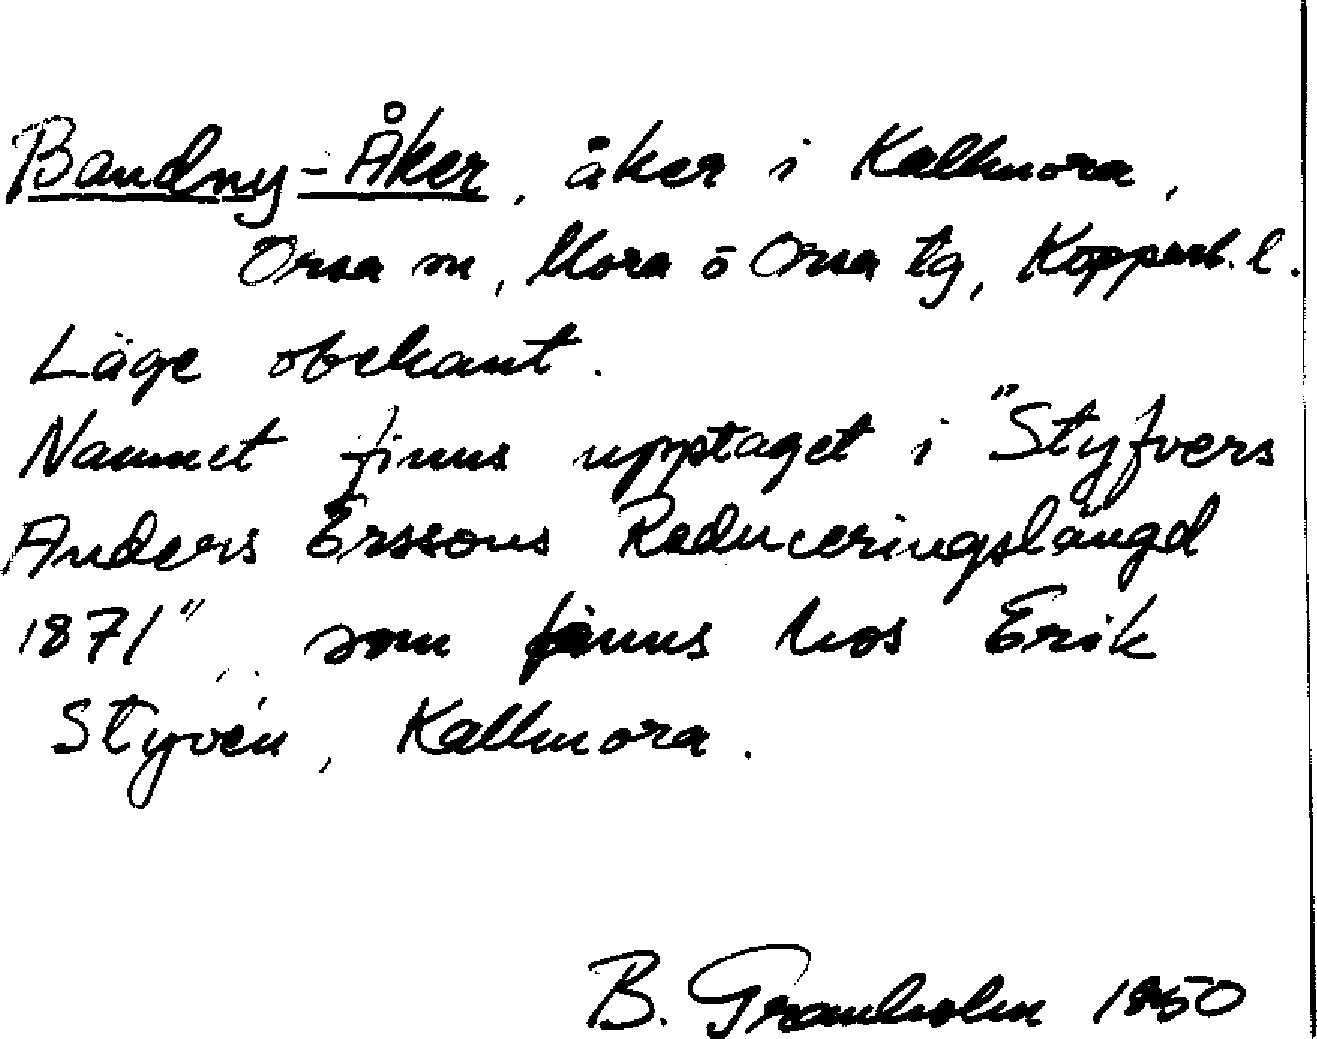 Bandny-Åker, åker i Kallmora,
Orsa sn, Mora o Orsa tg, Kopparb. l.
Läge obekant.
Namnet finns upptaget i "Styfvers
Anders Erssons Reduceringslängd
1871", som finns hos Erik
Styvén, Kallmora.
B. Granholm 1950